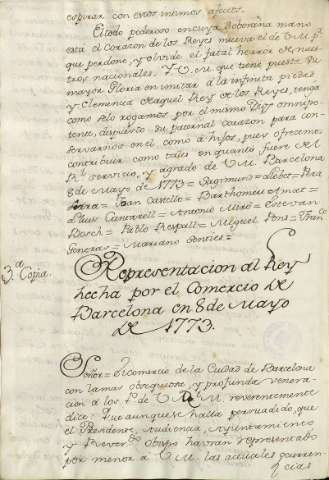 espirar con estos mismos afectos.
El todo poderoso en cuya Soberana mano
está el Corazon de los Reyes mueva el de V.M.
que perdone, y olvide el fatal herror de nues
tros nacionales. Y V.M. que tiene puesta su
mayor Gloria en imitar á la infinita piedad
y Clemencia de aquel Rey de los Reyes, tenga
como se lo rogamos por el mismo Dios omnipo
tente, dispuesto su paternal corazon para con
servarnos en él, como á hijos, pues ofrecemos
contribuir como tales en quanto fuere del
Rl. servicio, y agrado de V.M. Barcelona
8 de Mayo de 1773 =
Juan Castello = Barthomeu Amat =
Cantarell = Antonio Miró = Estevan
Bosch = Pablo Respall = Miguel Pons = Franco.
= Mariano
3.a Copia.
Representacion al Rey
hecha por el Comercio de
Barcelona en 8 de Mayo
de 1773.
Señor = El Comercio de la Ciudad de Barcelona
con la mas obsequiosa, y profunda venera
cion a los Ps. de V.M. reverentemente
dice: Que aunque se halla persuadido, que
el Presidente, Audiencia, Ayuntamiento
y Reverdo. Obispo havran representado
por menor á V.M. las actuales ocurren
cias